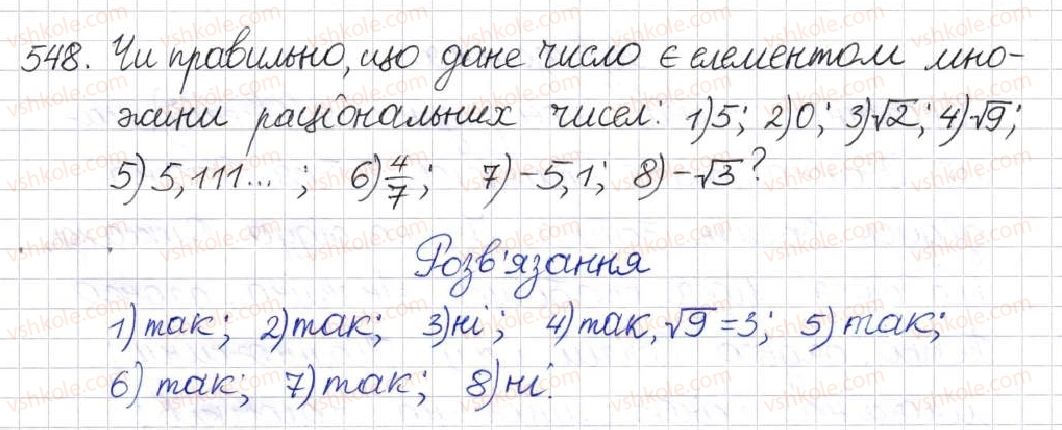 548. Чи правильно, що дане число є елементом мно-
жини раціональних чисел: 1) 5; 2) 0; 3) √2; 4) √9;
5) 5,111...; 6) 4/7; 7) -5,1; 8) -√3?
Розв'язання
1) так; 2) так; 3) ні; 4) так, √9 = 3; 5) так;
6) так; 7) так; 8) ні.
vshkole.com